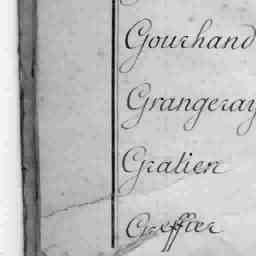 Gourhand
Grangeray
Gralien
Greffier